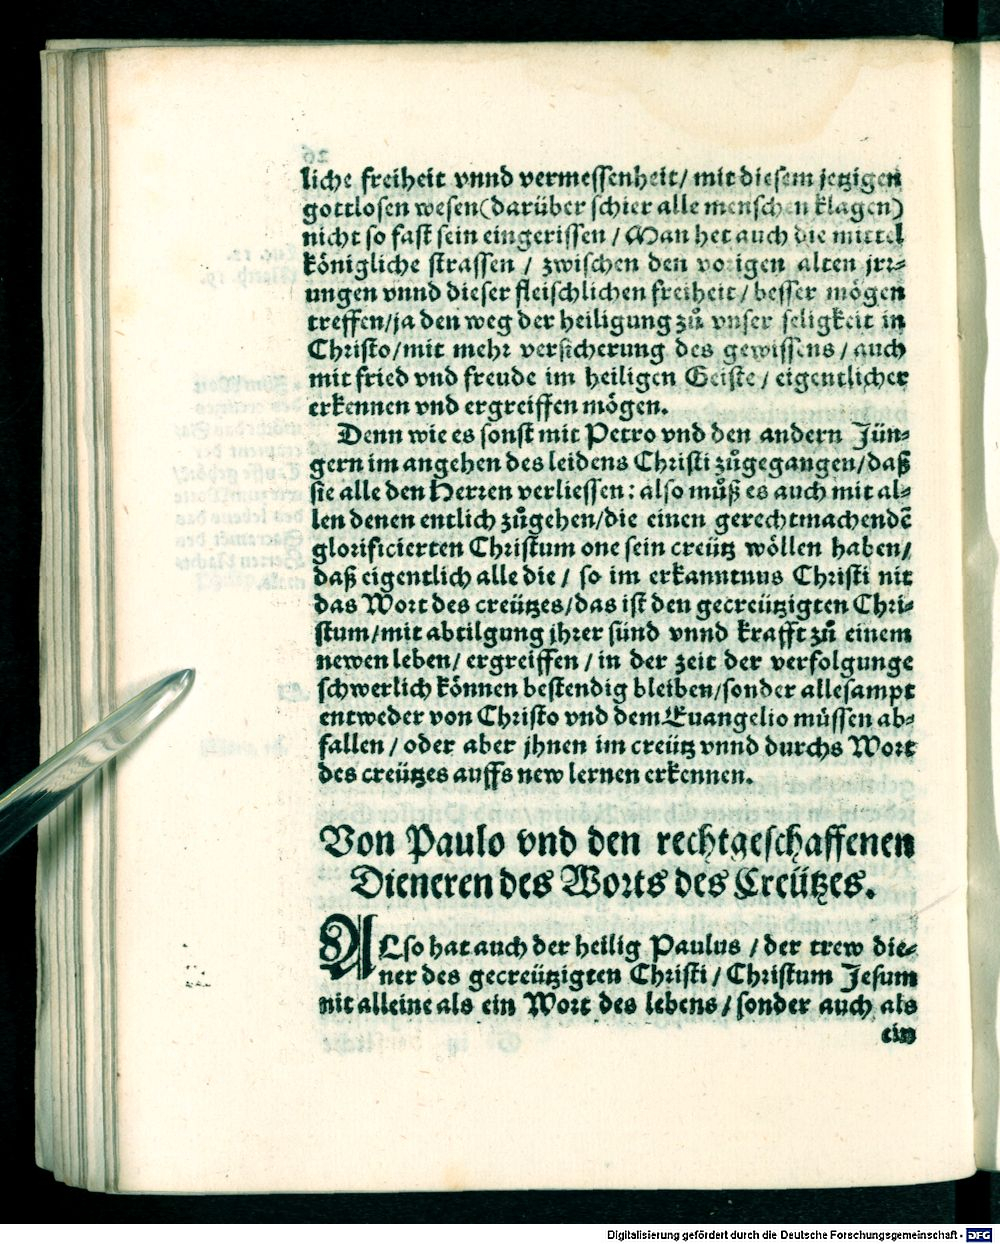 liche freiheit vnnd vermessenheit/ mit diesem jetzigen
gottlosen wesen(darüber schier alle menschen klagen)
nicht so fast sein eingerissen / Man het auch die mittel
königliche strassen / zwischen den vorigen alten jrr⸗
ungen vnnd dieser fleischlichen freiheit / besser mögen
treffen/ja den weg der heiligung zů vnser seligkeit in
Christo/mit mehr versicherung des gewissens / auch
mit fried vnd freude im heiligen Geiste / eigentlicher
erkennen vnd ergreiffen mögen.
Denn wie es sonst mit Petro vnd den andern Jün⸗
gern im angehen des leidens Christi zůgegangen/daß
sie alle den Herren verliessen: also můß es auch mit al⸗
len denen entlich zůgehen/die einen gerechtmachendē
glorificierten Christum one sein creütz wöllen haben/
daß eigentlich alle die / so im erkanntnus Christi nit
das Wort des creützes/das ist den gecreützigten Chri⸗
stum/mit abtilgung jhrer sünd vnnd krafft zů einem
newen leben/ ergreiffen / in der zeit der verfolgunge
schwerlich können bestendig bleiben/sonder allesampt
entweder von Christo vnd dem Euangelio müssen ab⸗
fallen / oder aber jhnen im creütz vnnd durchs Wort
des creützes auffs new lernen erkennen.
Von Paulo vnd den rechtgeschaffenen
Dieneren des Worts des Creützes.
ALso hat auch der heilig Paulus / der trew die⸗
ner des gecreützigten Christi / Christum Jesum
nit alleine als ein Wort des lebens / sonder auch als
ein
Digitalisierung gefördert durch die Deutsche Forschungsgemeinschaft - DFG